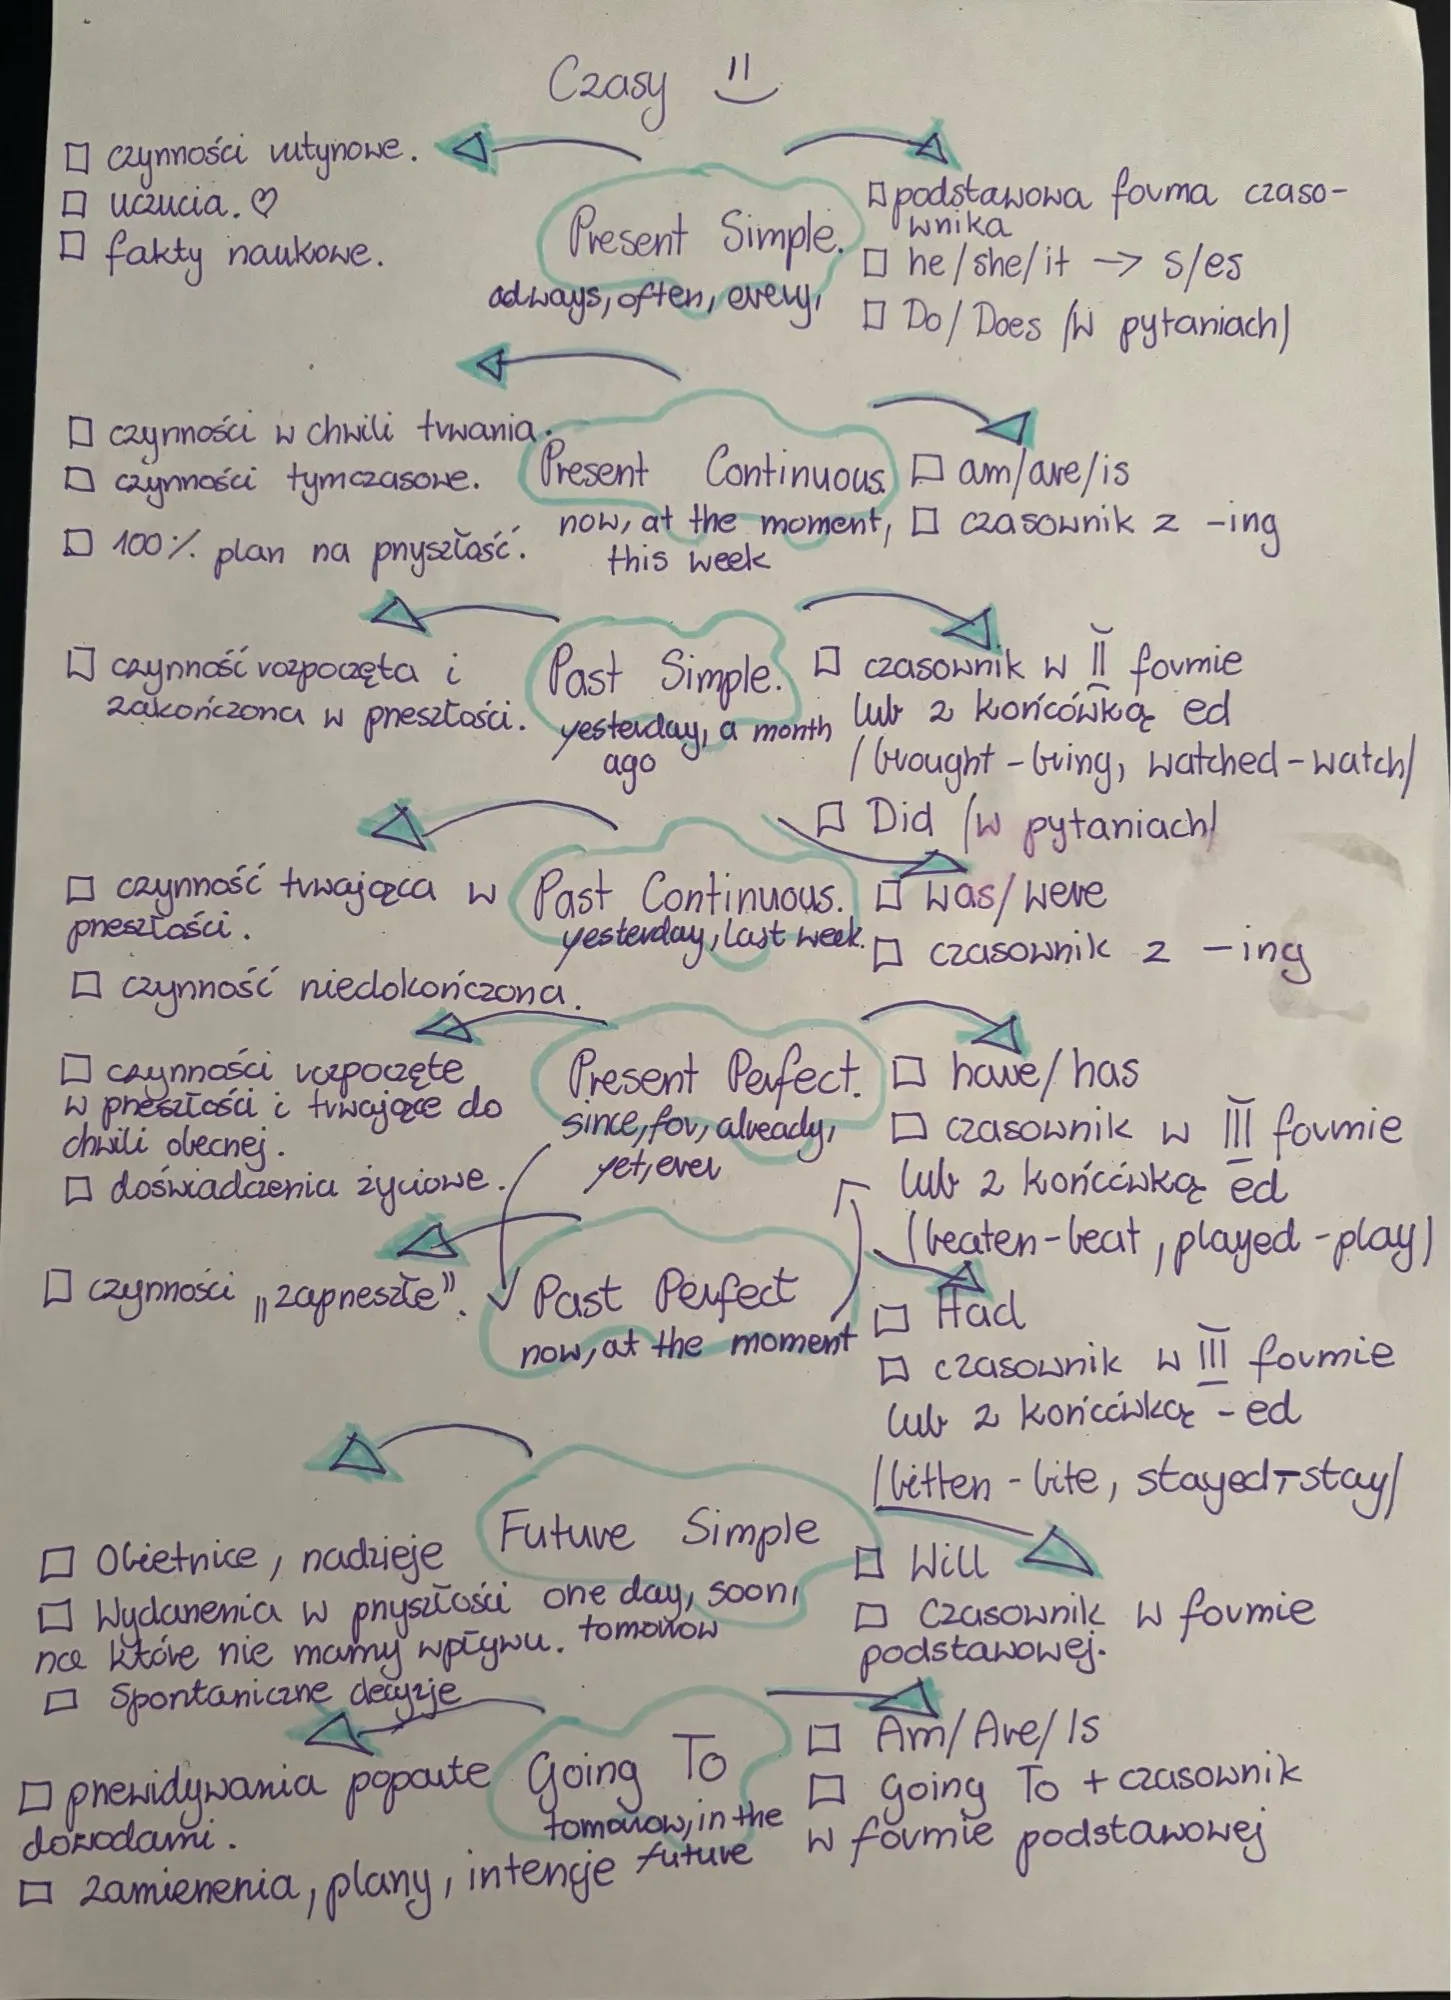 Czasy
czynności rutynowe.
uczucia. ♡
fakty naukowe.
Present Simple.
always, often, every,
podstawowa forma czaso-
wnika
he/she/it → s/es
Do/Does /w pytaniach/
czynności w chwili trwania.
czynności tymczasowe.
100% plan na przyszłość.
Present Continuous.
now, at the moment,
this week
am/are/is
czasownik z -ing
czynność rozpoczęta i
zakończona w przeszłości.
Past Simple.
yesterday, a month
ago
czasownik w II formie
lub z końcówką ed
/brought - bring, watched - watch/
Did /w pytaniach/
czynność trwająca w
przeszłości.
czynność niedokończona.
Past Continuous.
yesterday, last week.
was/were
czasownik z -ing
czynności rozpoczęte
w przeszłości i trwające do
chwili obecnej.
doświadczenia życiowe.
Present Perfect.
since, for, already,
yet, ever
have/has
czasownik w III formie
lub z końcówką ed
(beaten - beat, played - play)
czynności „zaprzeszłe”.
Past Perfect
now, at the moment
Had
czasownik w III formie
lub z końcówką - ed
/bitten - bite, stayed - stay/
Obietnice, nadzieje
Wydarzenia w przyszłości
na które nie mamy wpływu.
Spontaniczne decyzje
Future Simple
one day, soon,
tomorrow
Will
Czasownik w formie
podstawowej.
przewidywania poparte
dowodami.
zamierzenia, plany, intencje
Going To
tomorrow, in the
future
Am/Are/Is
going To + czasownik
w formie podstawowej